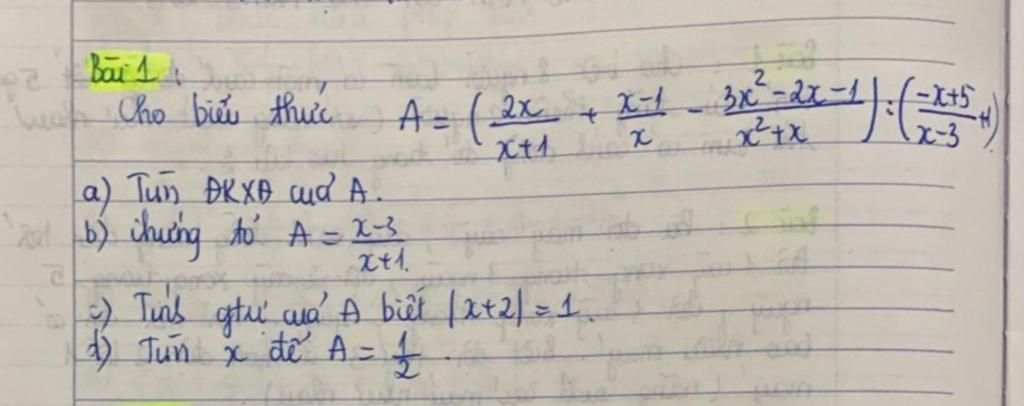 Bài 1:
Cho biểu thức A = (2x/(x+1) + (x-1)/x - (3x²-2x-1)/(x²+x)) : ((-x+5)/(x-3) +1)
a) Tìm ĐKXĐ của A.
b) Chứng tỏ A = (x-3)/(x+1).
c) Tính gtrị của A biết |x+2| = 1.
d) Tìm x để A = 1/2.